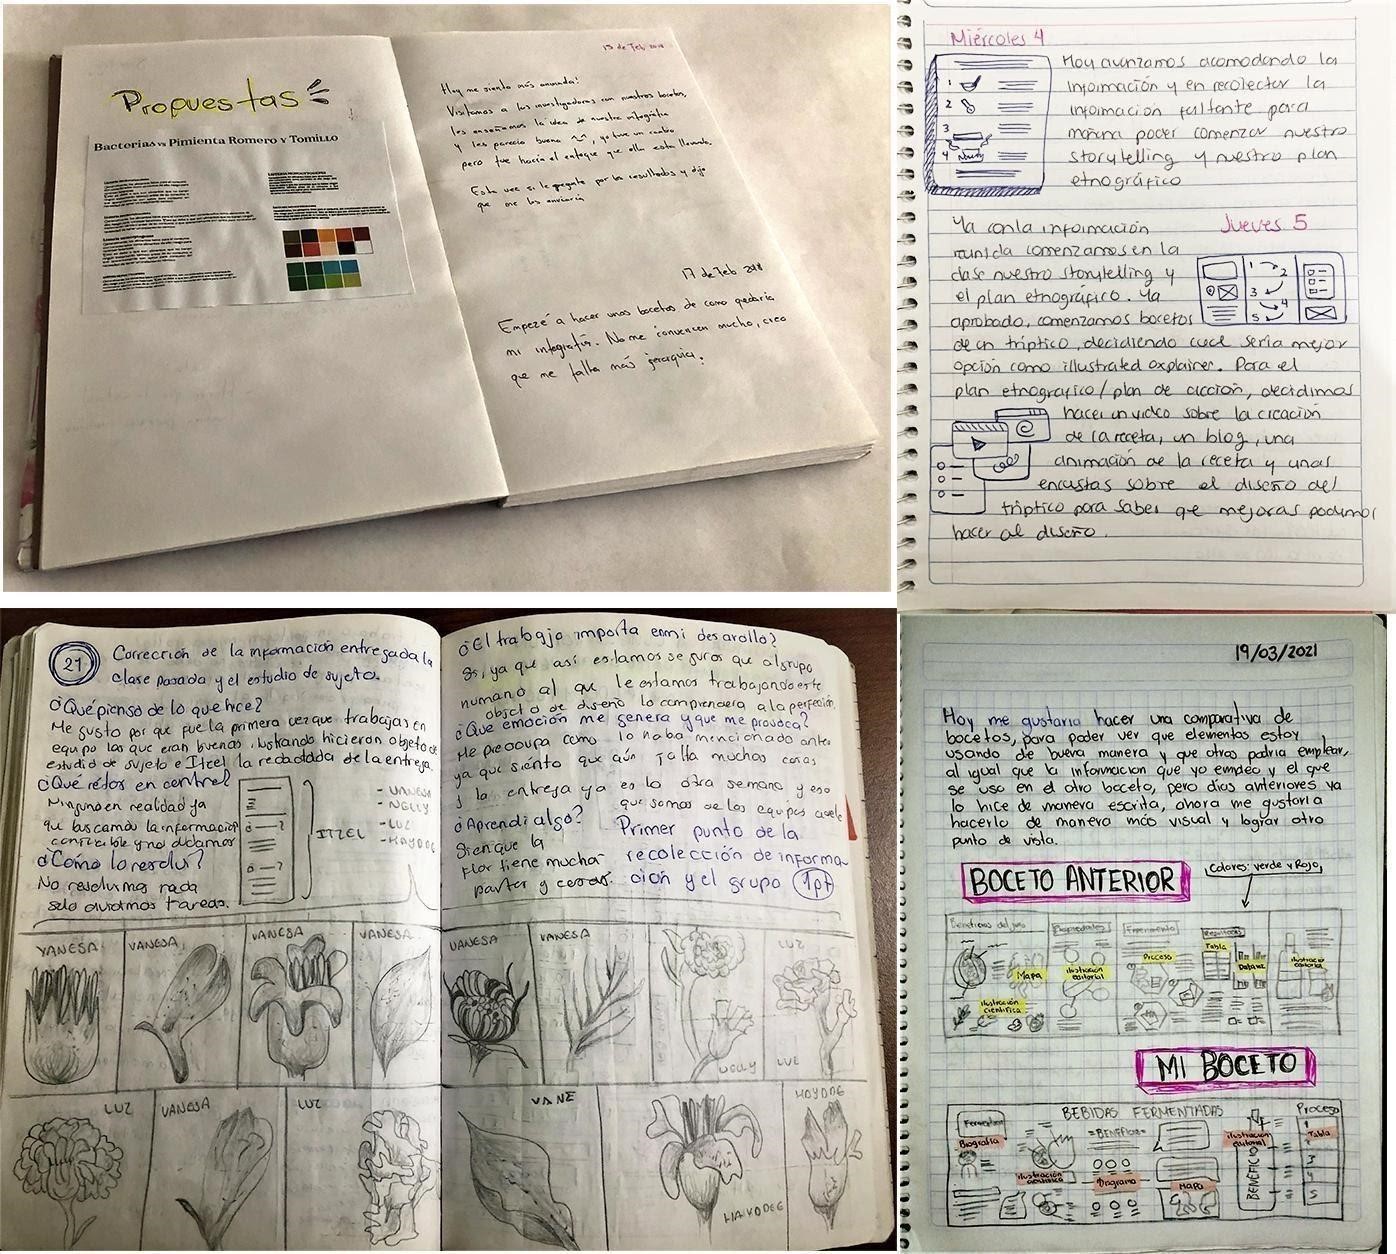 Propuestas
Bacterias vs Pimienta Romero y Tomillo
15 de Feb 2018
Hoy me siento más animada!
Visitamos a las investigadoras con nuestros bocetos,
les enseñamos la idea de nuestra infografía
y les pareció buena ^^, yo tuve un cambio
pero fue hacia el enfoque que ella esta llevando.
Esta vez si le pregunté por los resultados y dijo
que me los enviaría
17 de Feb 2018
Empezé a hacer unos bocetos de como quedaria
mi infografia. No me convencen mucho, creo
que me falta más jerarquia.
Miércoles 4
Hoy avanzamos acomodando la
información y en recolectar la
información faltante para
mañana poder comenzar nuestro
storytelling y nuestro plan
etnográfico
1
2
3
4
Jueves 5
Ya con la información
reunida comenzamos en la
clase nuestro storytelling y
el plan etnográfico. Ya
aprobado, comenzamos bocetos
de un tríptico, decidiendo cual seria mejor
opción como illustrated explainer. Para el
plan etnográfico/plan de acción, decidimos
hacer un video sobre la creación
de la receta, un blog, una
animación de la receta y unas
encuestas sobre el diseño del
tríptico para saber que mejoras podemos
hacer al diseño.
1 2
3 4
5
21
Corrección de la información entregada la
clase pasada y el estudio de sujeto.
¿Qué pienso de lo que hice?
Me gusto por que fue la primera vez que trabajas en
equipo las que eran buenas ilustrando hicieron objeto de
estudio de sujeto e Itzel la redactada de la entrega
¿Qué retos encontré?
Ninguno en realidad ya
que buscamos la información
confiable y no dudamos
¿Cómo lo resolví?
No resolvimos nada
solo dividimos tareas.
ITZEL
- VANESA
- NELLY
- LUZ
- HAYDEE
¿El trabajo importa en mi desarollo?
Si, ya que así estamos seguros que al grupo
humano al que le estamos trabajando este
objeto de diseño lo comprenderá a la perfección
¿Qué emoción me genera y que me provoca?
Me preocupa como lo había mencionado antes
ya que siento que aún falta muchas cosas
y la entrega ya es la otra semana y eso
que somos de los equipos
¿Aprendí algo?
Si en que la
flor tiene muchas
partes y
Primer punto de la
recolección de informa-
ción y el grupo 1pt
VANESA VANESA VANESA VANESA VANESA VANESA LUZ
NELLY LUZ
LUZ VANESA LUZ VANE HAYDEE
HAYDEE
19/03/2021
Hoy me gustaria hacer una comparativa de
bocetos, para poder ver que elementos estoy
usando de buena manera y que otros podria emplear,
al igual que la informacion que yo empleo y el que
se uso en el otro boceto, pero dias anteriores ya
lo hice de manera escrita, ahora me gustaria
hacerlo de manera más visual y lograr otro
punto de vista.
BOCETO ANTERIOR
Colores: verde y Rojo
Beneficios del
Propiedades
Experimento
Resultados
Mapa
ilustración
editorial
Proceso
Tabla
ilustración
editorial
ilustración
cientifica
MI BOCETO
BEBIDAS FERMENTADAS
Biografia
=BENEFICIOS=
ilustración
editorial
BENEFICIO
Proceso
1
Tabla
3
4
5
ilustración
cientifica
Diagrama
Mapa